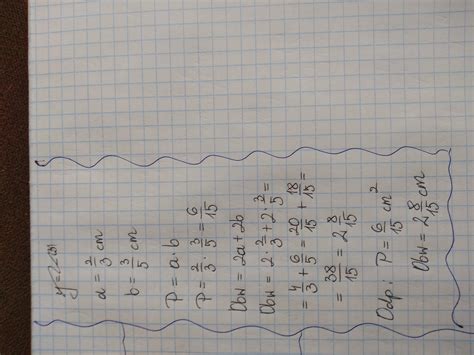 a = 2/3 cm
b = 3/5 cm
P = a · b
P = 2/3 · 3/5 = 6/15
Obw = 2a + 2b
Obw = 2 · 2/3 + 2 · 3/5 =
= 4/3 + 6/5 = 20/15 + 18/15 =
= 38/15 = 2 8/15
Odp: P = 6/15 cm²
Obw = 2 8/15 cm